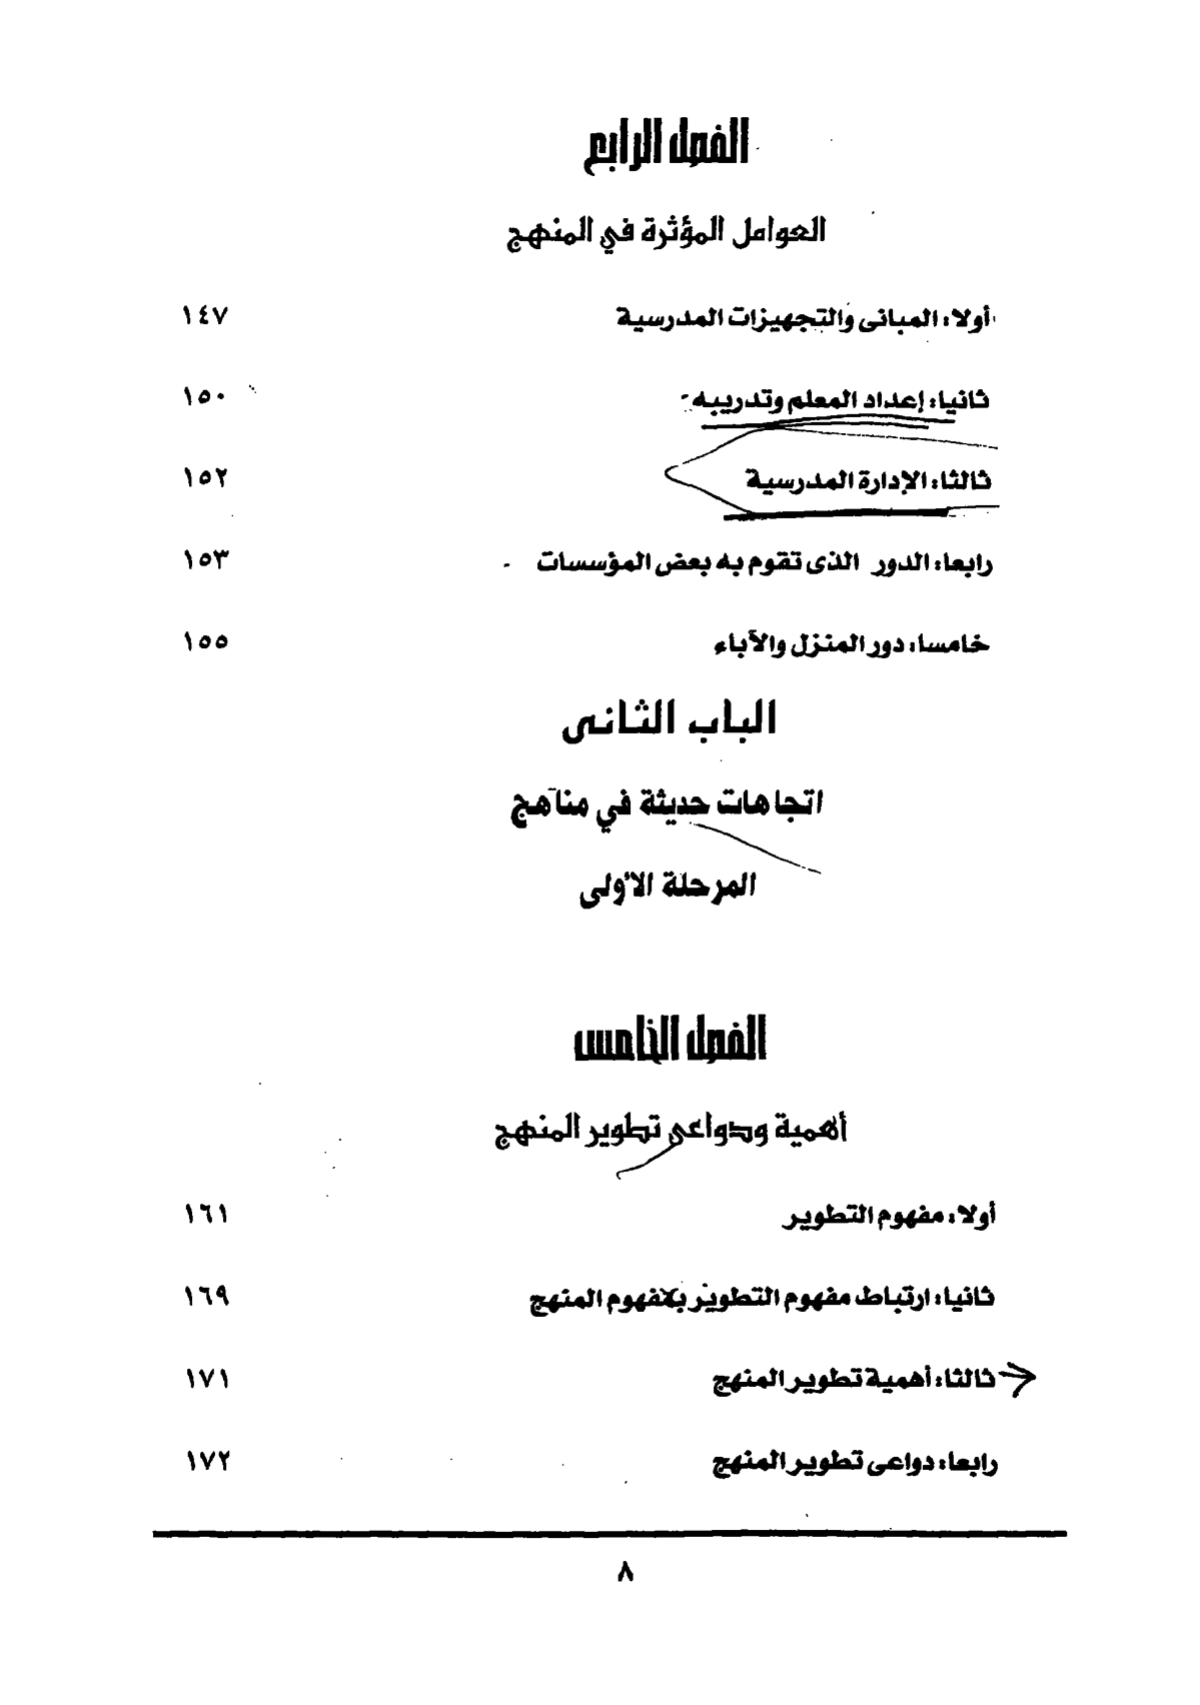 الفصل الرابع
العوامل المؤثرة في المنهج
أولا: المبانى والتجهيزات المدرسية ١٤٧
ثانيا: إعداد المعلم وتدريبه ١٥٠
ثالثا: الإدارة المدرسية ١٥٢
رابعا: الدور الذى تقوم به بعض المؤسسات ١٥٣
خامسا: دور المنزل والآباء ١٥٥
الباب الثانى
اتجاهات حديثة في مناهج
المرحلة الأولى
الفصل الخامس
أهمية ودواعى تطوير المنهج
أولا: مفهوم التطوير ١٦١
ثانيا: ارتباط مفهوم التطوير بمفهوم المنهج ١٦٩
ثالثا: أهمية تطوير المنهج ١٧١
رابعا: دواعى تطوير المنهج ١٧٢
٨